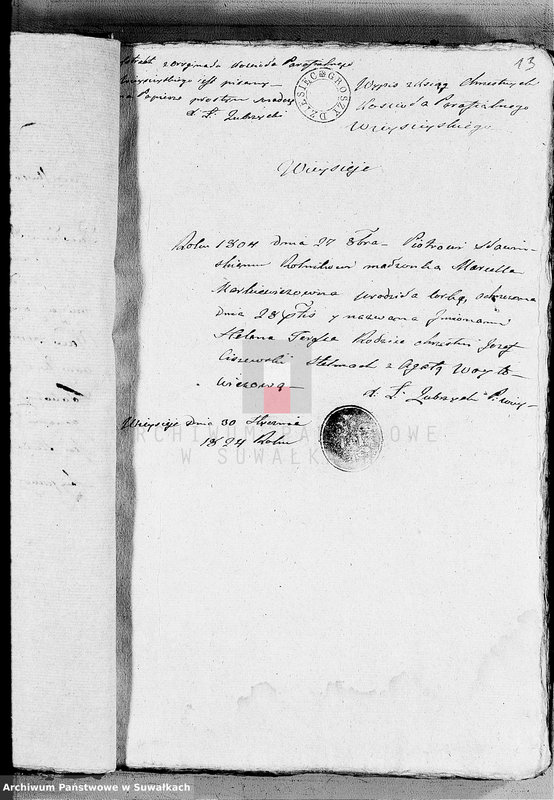 13
z oryginału Kościoła Parafialnego
jest pisany
na Papierze prostym
X. F. Zubrzycki
DZIESIĘC GROSZY
Wypis z Ksiąg Chrzestnych
Kościoła Parafialnego
Wieysieyskiego
Wieysieje
Roku 1804 dnia 27 8bra Piotrowi Sławiń-
skiemu Rolnikowi małżonka Marcella
Markiewiczowna urodziła Corkę, ochrzczona
dnia 28 y nazwana Imionami
Helena Teressa Rodzice chrzestni Jozef
Ciszewski Stelmach z Agatą Woyt-
wiczową
X. F. Zubrzycki
Wieysieje Dnia 30 Stycznia
1824 Roku
ARCHIWUM PAŃSTWOWE
W SUWAŁKACH
Archiwum Państwowe w Suwałkach